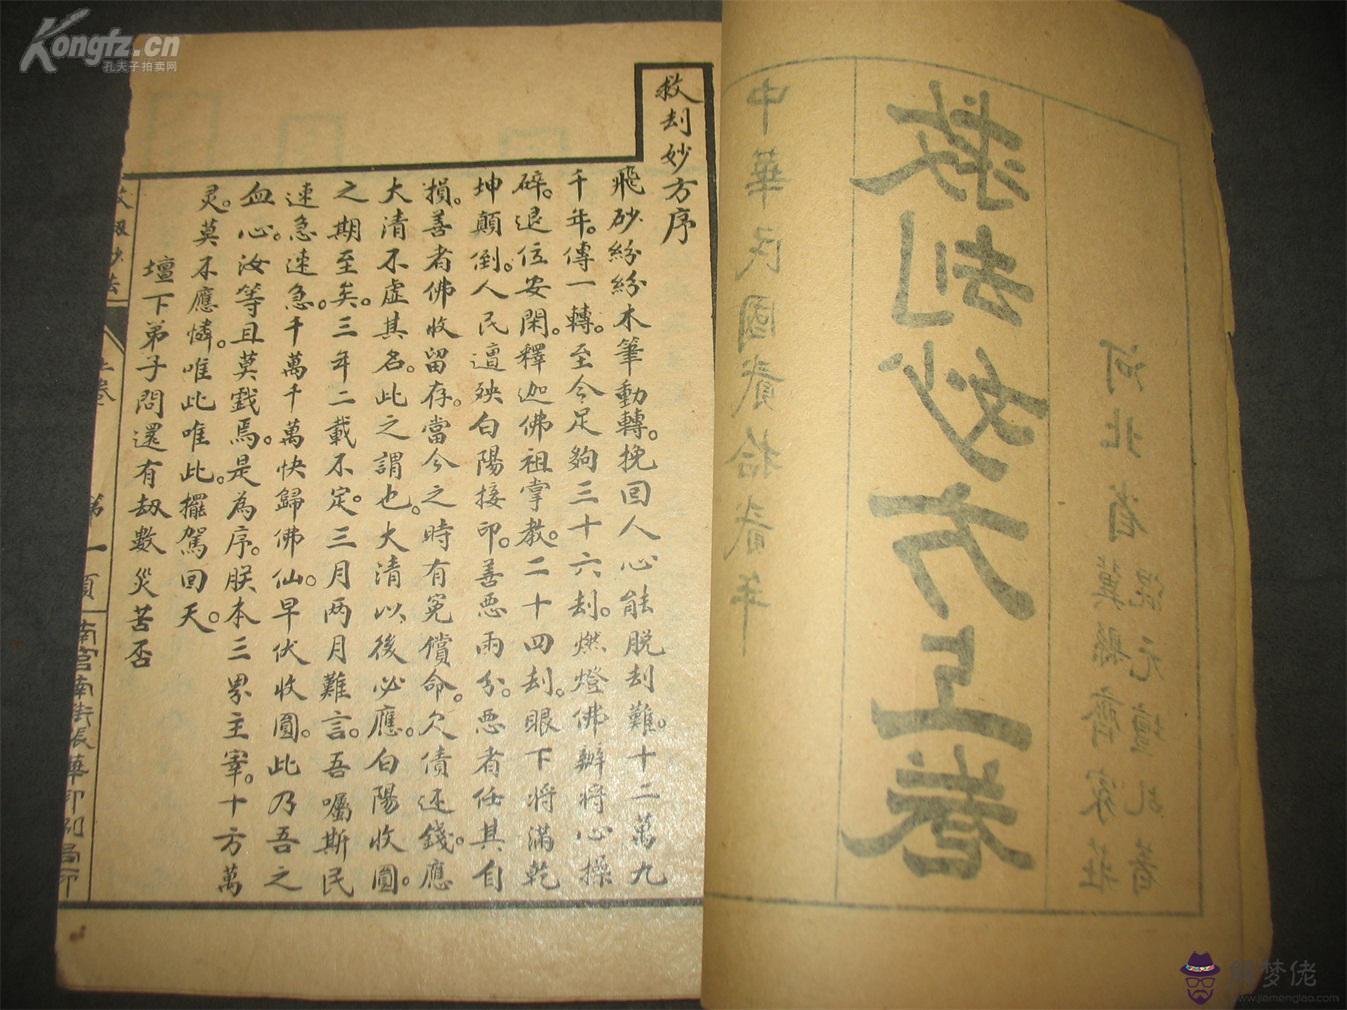 中華民國貳拾貳年
救刦妙方上卷
河北省冀縣齊家莊
混元壇乩著
救刦妙方序
飛砂紛紛木筆動轉。挽回人心能脱刦難。十二萬九
千年。傳一轉。至今足夠三十六刦。燃燈佛辦將心操
碎。退位安閑。釋迦佛祖掌教。二十四刦。眼下將滿乾
坤顛倒。人民遭殃白陽接印。善惡兩分。惡者任其自
損。善者佛收留存。當今之時有冤償命。欠債还錢。應
大清不虛其名。此之謂也。大清以後必應。白陽收圓。
之期至矣。三年二載不定。三月两月難言。吾囑斯民
速急速急。千萬千萬快歸佛仙。早伏收圓。此乃吾之
血心。汝等且莫戲焉。是為序。朕本三界主宰。十方萬
灵。莫不應憐。唯此唯此。擺駕回天。
壇下弟子問還有刼數災苦否
上卷
第一頁
南宮南街張華印刷局印
Kongfz.cn
孔夫子拍卖网
解梦佬
www.jiemenglao.com